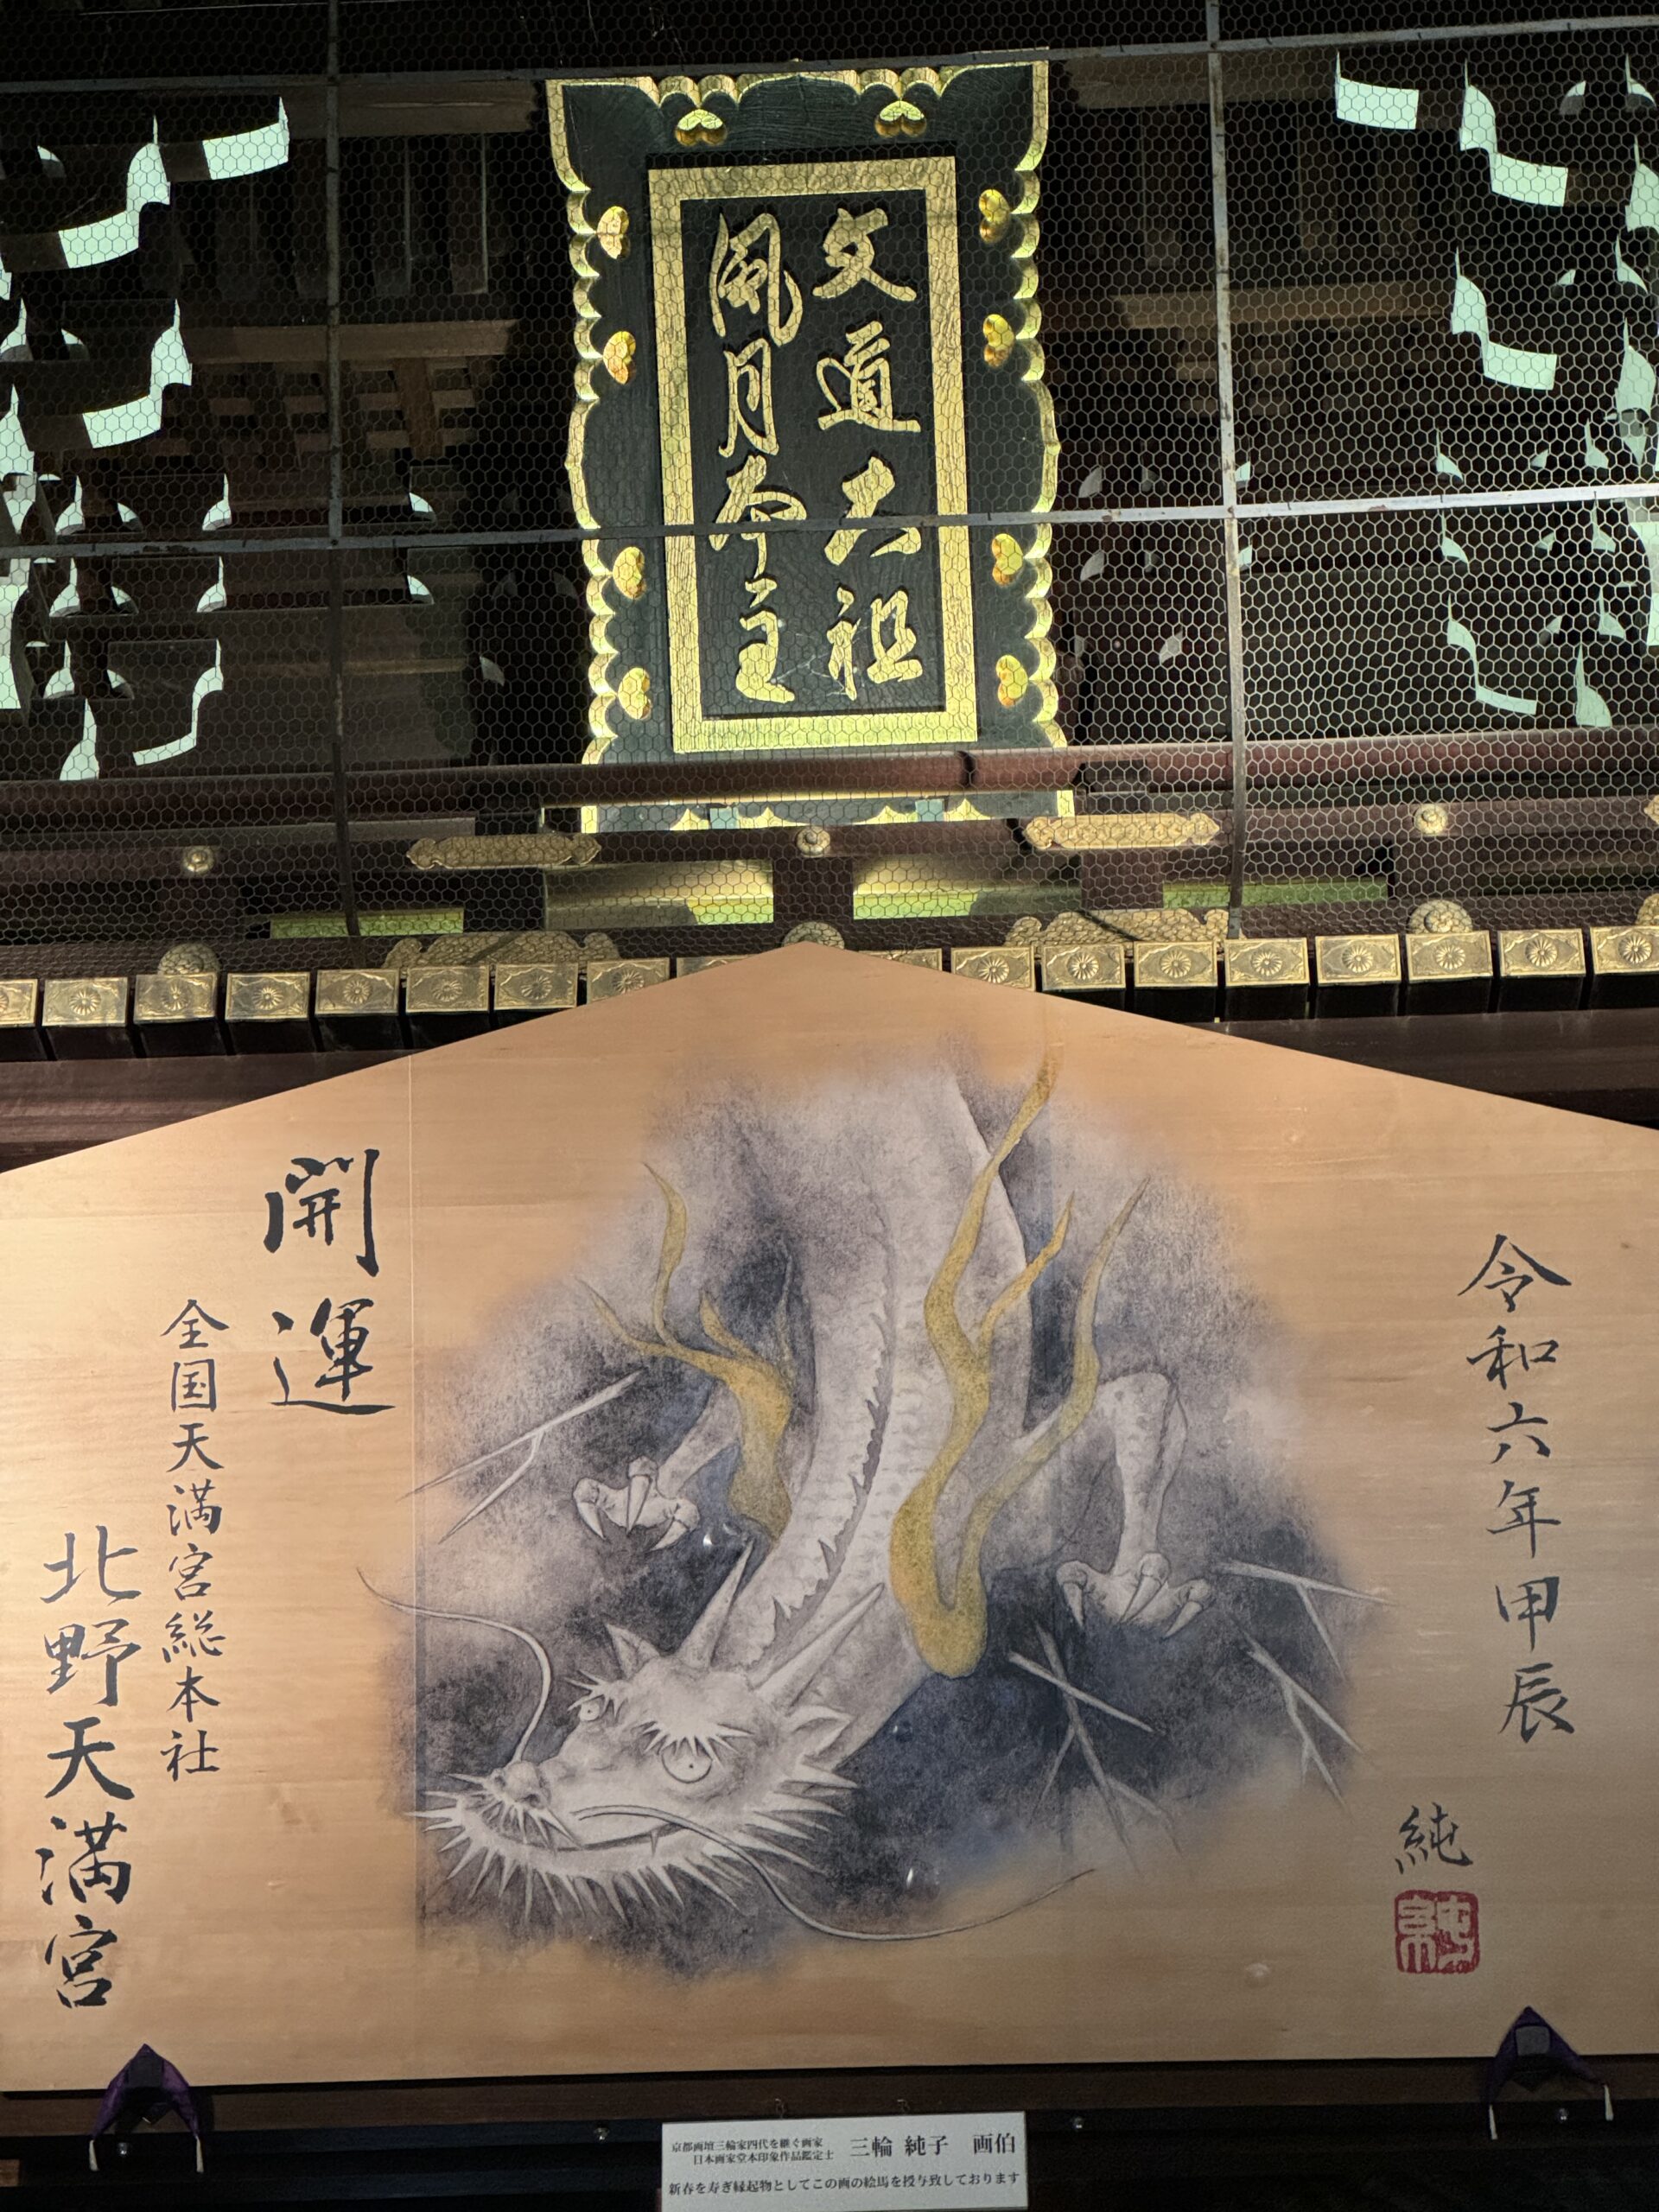 文道大祖
風月本主
令和六年甲辰
純
開運
全国天満宮総本社
北野天満宮
京都画壇三輪家四代を継ぐ画家
日本画家堂本印象作品鑑定士
三輪 純子 画伯
新春を寿ぎ縁起物としてこの画の絵馬を授与致しております